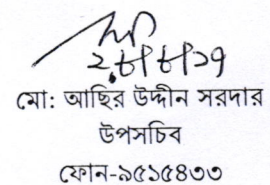 মো: আছির উদ্দীন সরদার
উপসচিব
ফোন-৯৫১৫৪৩৩